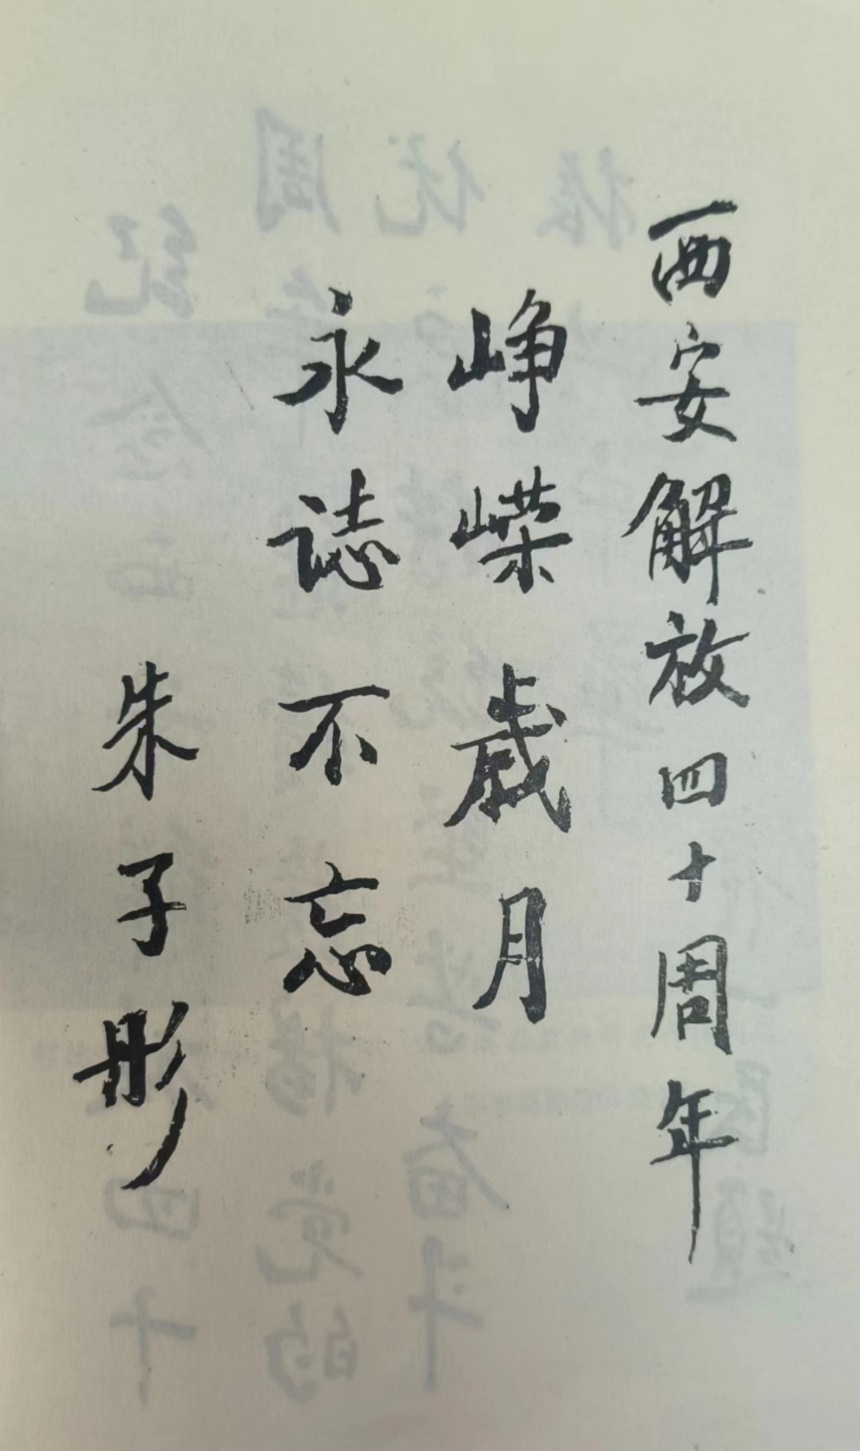 西安解放四十周年
峥嵘歲月
永誌不忘
朱子彤